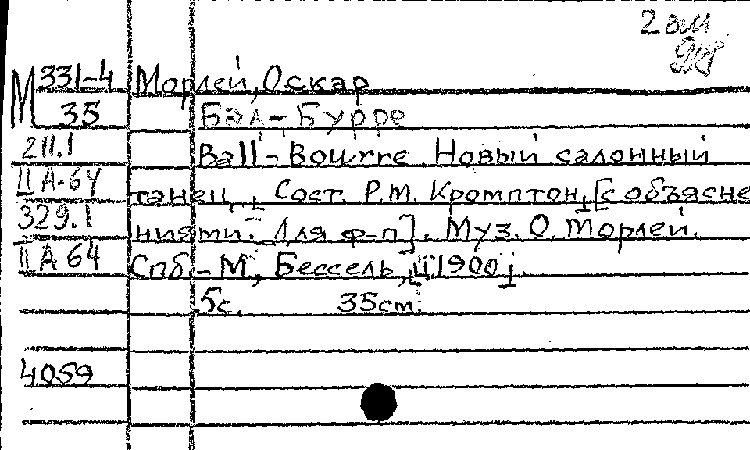 2 эк
М 331-4 Морлей, Оскар
35 Бэл-Бурре
211.1 Ball-Bourre. Новый салонный
II А-64 танец. Сост. Р.М. Кромптон, [с объясне
329.1 ниями. Для ф-п]. Муз. О. Морлей.
II А 64 Спб-М, Бессель, [1900]
5с. 35см.
4059